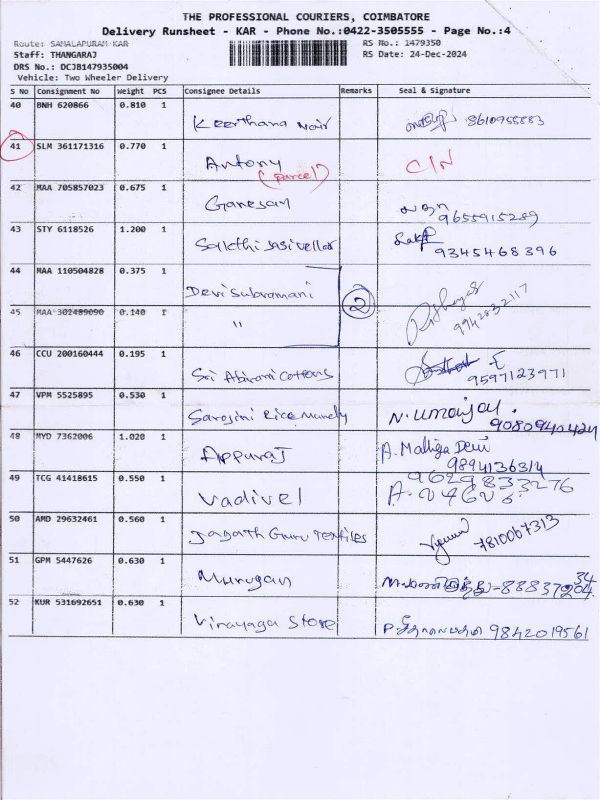 THE PROFESSIONAL COURIERS, COIMBATORE
Delivery Runsheet - KAR - Phone No.:0422-3505555 - Page No.:4
Route: SAMALAPURAM KAR
RS No.: 1479350
Staff: THANGARAJ
RS Date: 24-Dec-2024
DRS No.: DCJB147935004
Vehicle: Two Wheeler Delivery
S No Consignment No Weight PCS Consignee Details Remarks Seal & Signature
40 BNH 620866 0.810 1 Keerthana Nair 8610955883
41 SLM 361171316 0.770 1 Antony (parcel) C/N
42 MAA 705857023 0.675 1 Ganesan 9655915289
43 STY 6118526 1.200 1 Sakthi 9345468396
44 MAA 110504828 0.375 1 Devi Subramani 2
45 MAA 302489090 0.140 1 " 9942832117
46 CCU 200160444 0.195 1 Sri Abirami Cottons 9597123971
47 VPM 5525895 0.530 1 Sarojini Rice Mundy 9080940424
48 MYD 7362006 1.020 1 Appuraj A. Malliga Devi 9894136314
49 TCG 41418615 0.550 1 Vadivel 9629833276
50 AMD 29632461 0.560 1 Jagath Guru Textiles 7810067313
51 GPM 5447626 0.630 1 Murugan
52 KUR 531692651 0.630 1 Vinayaga Store 9842019561